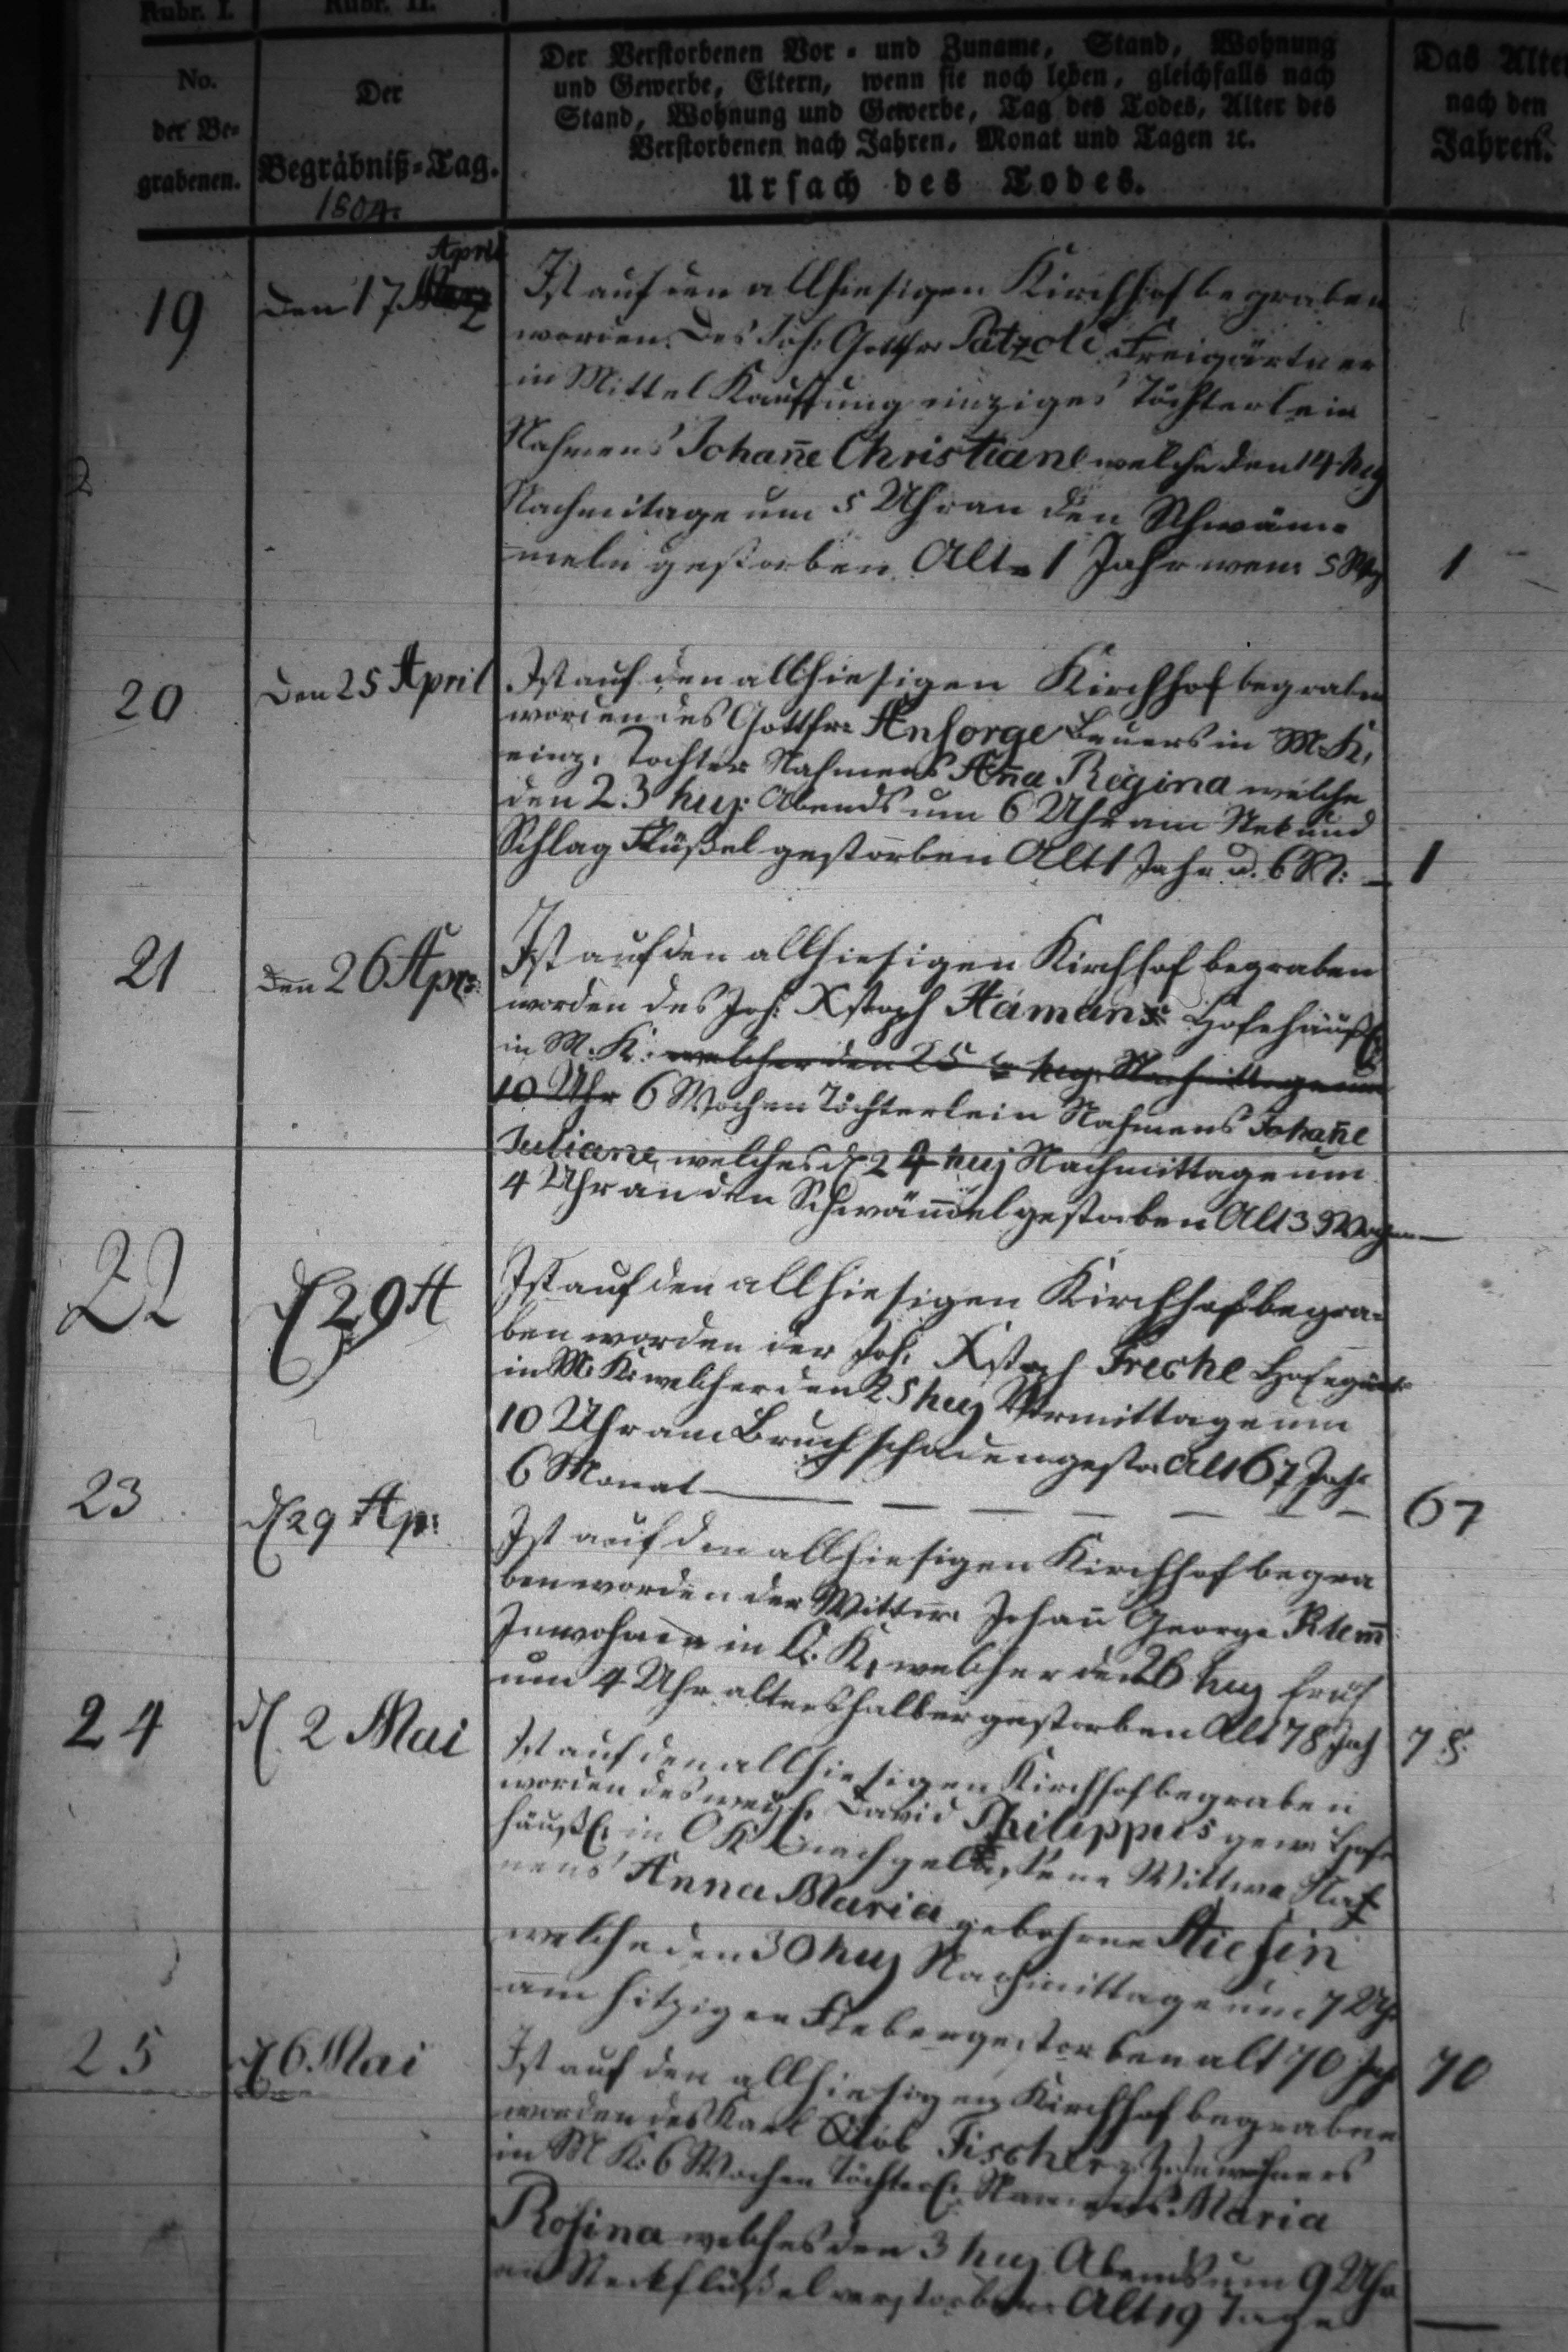 Rubr. I.
Rubr. II.
No.
der Be-
grabenen.
Der
Begräbniß-Tag.
1804.
Der Verstorbenen Vor- und Zuname, Stand, Wohnung
und Gewerbe, Eltern, wenn sie noch leben, gleichfalls nach
Stand, Wohnung und Gewerbe, Tag des Todes, Alter des
Verstorbenen nach Jahren, Monat und Tagen ꝛc.
Ursach des Todes.
Das Alter
nach den
Jahren.
19
April
den 17
Ist auf den allhiesigen Kirchhof begraben
worden. Des Joh: Gottfr: Pätzold Freigärtner
in Mittel Kauffung einziges Töchterlein
Nahmens Johañe Christiane welche den 14 huj
Nachmitage um 5 Uhr an den Schwäm-
meln gestorben. Alt 1 Jahr wen: 5
1
20
Den 25 April
Ist auf den allhiesigen Kirchhof begraben
worden des Gottfr: Ansorge Bauers in M. K.
einz. Tochter Nahmens Aña Regina welche
den 23 huj: Abends um 6 Uhr am Stek und
Schlag Flüßel gestorben Alt 1 Jahr u. 6 M: —
1
21
den 26 Apr:
Ist auf den allhiesigen Kirchhof begraben
worden des Joh: Xstoph Hämans Hofehäußl:
in M. K. welcher den 25 huj: Nachmittage um
10 Uhr 6 Wochen Töchterlein Nahmens Johañe
Juliane, welches d. 24 huj Nachmittage um
4 Uhr an den Schwäm̃el gestorben Alt 3 Wochen —
22
d. 29 A
Ist auf den allhiesigen Kirchhof begra-
ben worden der Joh. Xstoph Freche Hofegärt:
in M. K. welcher den 25 huj Vormittage um
10 Uhr am Bruchschaden gest. Alt 67 Jahr
6 Monat — — — — — —
67
23
d. 29 Ap:
Ist auf den allhiesigen Kirchhof begra
ben worden der Wittw: Johañ George Klem̃
Inwohner in O. K. welcher den 26 huj früh
um 4 Uhr altershalber gestorben Alt 78 Jah
78.
24
d. 2 Mai
Ist auf den allhiesigen Kirchhof begraben
worden des weyl. David Philippus gew. Hofe
häußl: in O K nachgelaßene Wittwe Nah
mens Anna Maria gebohrne
welche den 30 huj Nachmittage um 7 Uhr
am hitzigen Fieber gestorben alt 70 Jah
70
25
d. 6 Mai
Ist auf den allhiesigen Kirchhof begraben
worden des Karl Fischers Inwohners
in M K. 6 Wochen Töchterl: Namens Maria
Rosina welches den 3 huj Abends um 9 Uhr
an Steckflüßel verstorben Alt 19 Tage —